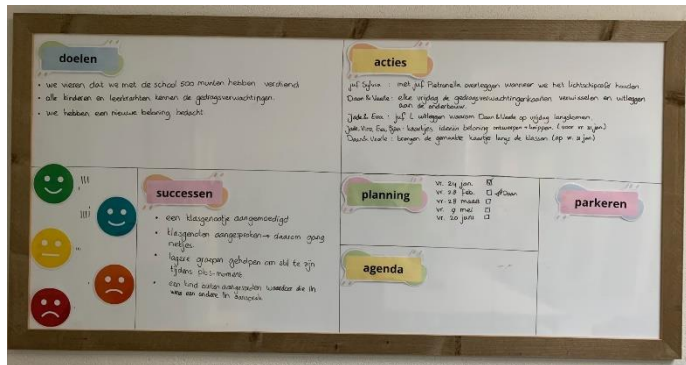 doelen
• we vieren dat we met de school 500 munten hebben verdiend
• alle kinderen en leerkrachten kennen de gedragsverwachtingen.
• we hebben een nieuwe beloning bedacht
acties
juf Sylvia : met juf Pietronella overleggen wanneer we het
Daan & Veerle : elke vrijdag de gedragsverwachtingenkaarten verwisselen en uitleggen
aan de onderbouw.
Jade & Eva : juf L uitleggen waarom Daan & Veerle op vrijdag langskomen.
kaartjes ideeën beloning ontwerpen + knippen. (voor vr 31 jan)
Daan & Veerle : brengen de gemaakte kaartjes langs de klassen (op vr 31 jan)
successen
• een klasgenootje aangemoedigd
• klasgenoten aangesproken → daarom gang
netjes.
• lagere groepen geholpen om stil te zijn
tijdens pbs-moment
• een kind buiten
een andere lln aansprak
planning
vr. 24 jan.
vr. 28 feb. Daan
vr. 28 maart
vr. 9 mei
vr. 20 juni
parkeren
agenda